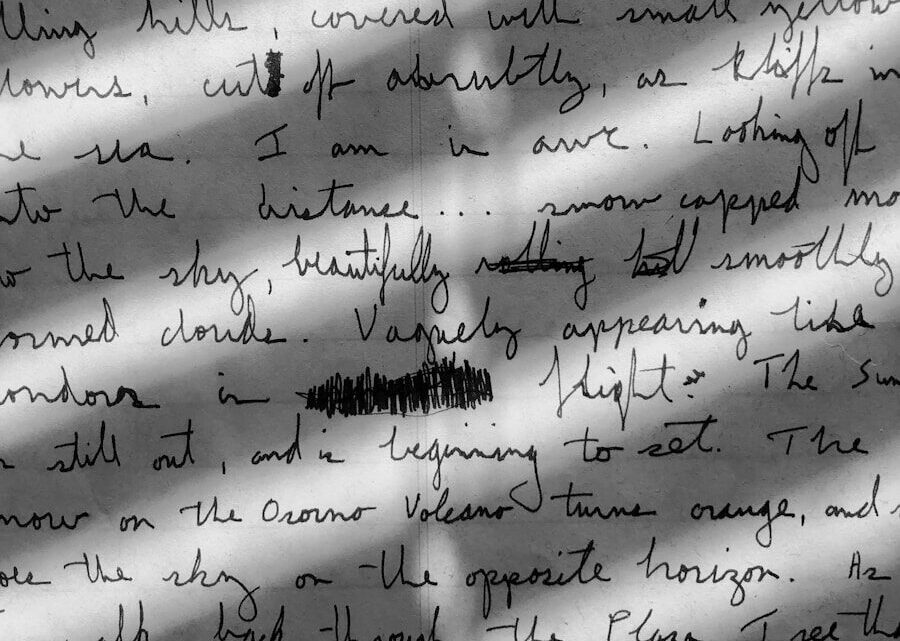 lling hills, covered with small yellow
lowers, cut off abrubtly, as kliffs in
he sea. I am in awe. Looking off
nto the distance... snow capped mo
w the sky, beautifully rolling smoothly
ormed clouds. Vaguely appearing like
ondors in flight. The Sun
s still out, and is beginning to set. The
now on the Osorno Volcano turns orange, and s
oes the sky on the opposite horizon. As
walk back through the Plaza I see tha